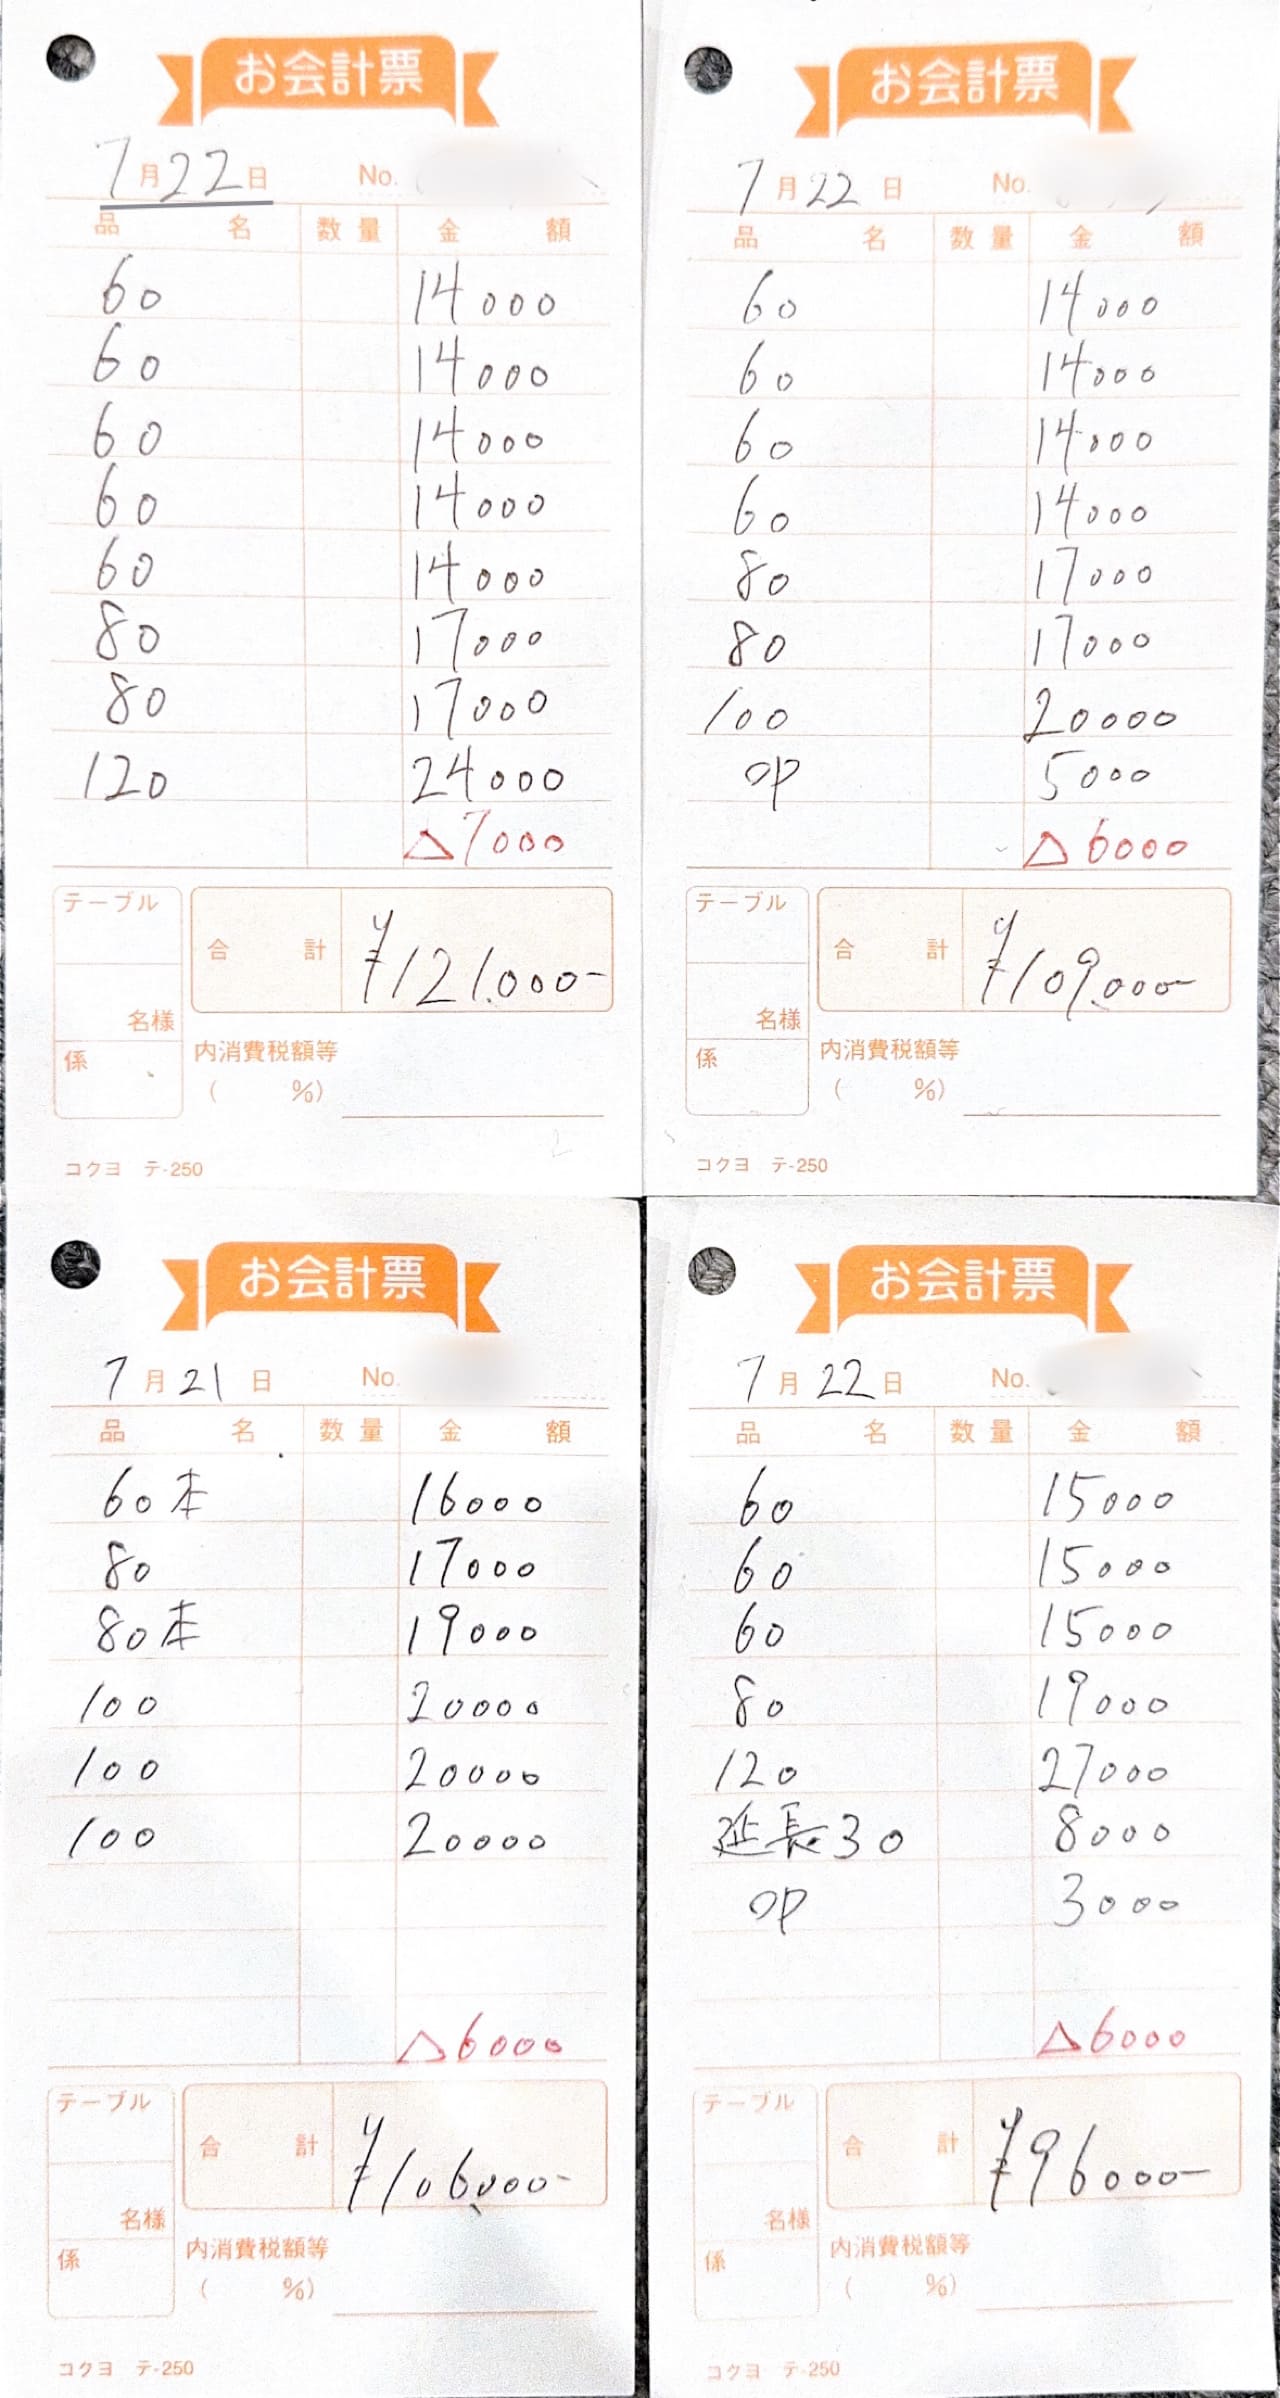 お会計票
7月22日 No.
品名 数量 金額
60 14000
60 14000
60 14000
60 14000
60 14000
80 17000
80 17000
120 24000
△7000
テーブル
合計 ¥121.000-
名様
係
内消費税額等
( %)
コクヨ テ-250
お会計票
7月22日 No.
品名 数量 金額
60 14000
60 14000
60 14000
60 14000
80 17000
80 17000
100 20000
OP 5000
△6000
テーブル
合計 ¥109.000-
名様
係
内消費税額等
( %)
コクヨ テ-250
お会計票
7月21日 No.
品名 数量 金額
60本 16000
80 17000
80本 19000
100 20000
100 20000
100 20000
△6000
テーブル
合計 ¥106,000-
名様
係
内消費税額等
( %)
コクヨ テ-250
お会計票
7月22日 No.
品名 数量 金額
60 15000
60 15000
60 15000
80 19000
120 27000
延長30 8000
OP 3000
△6000
テーブル
合計 ¥96000-
名様
係
内消費税額等
( %)
コクヨ テ-250